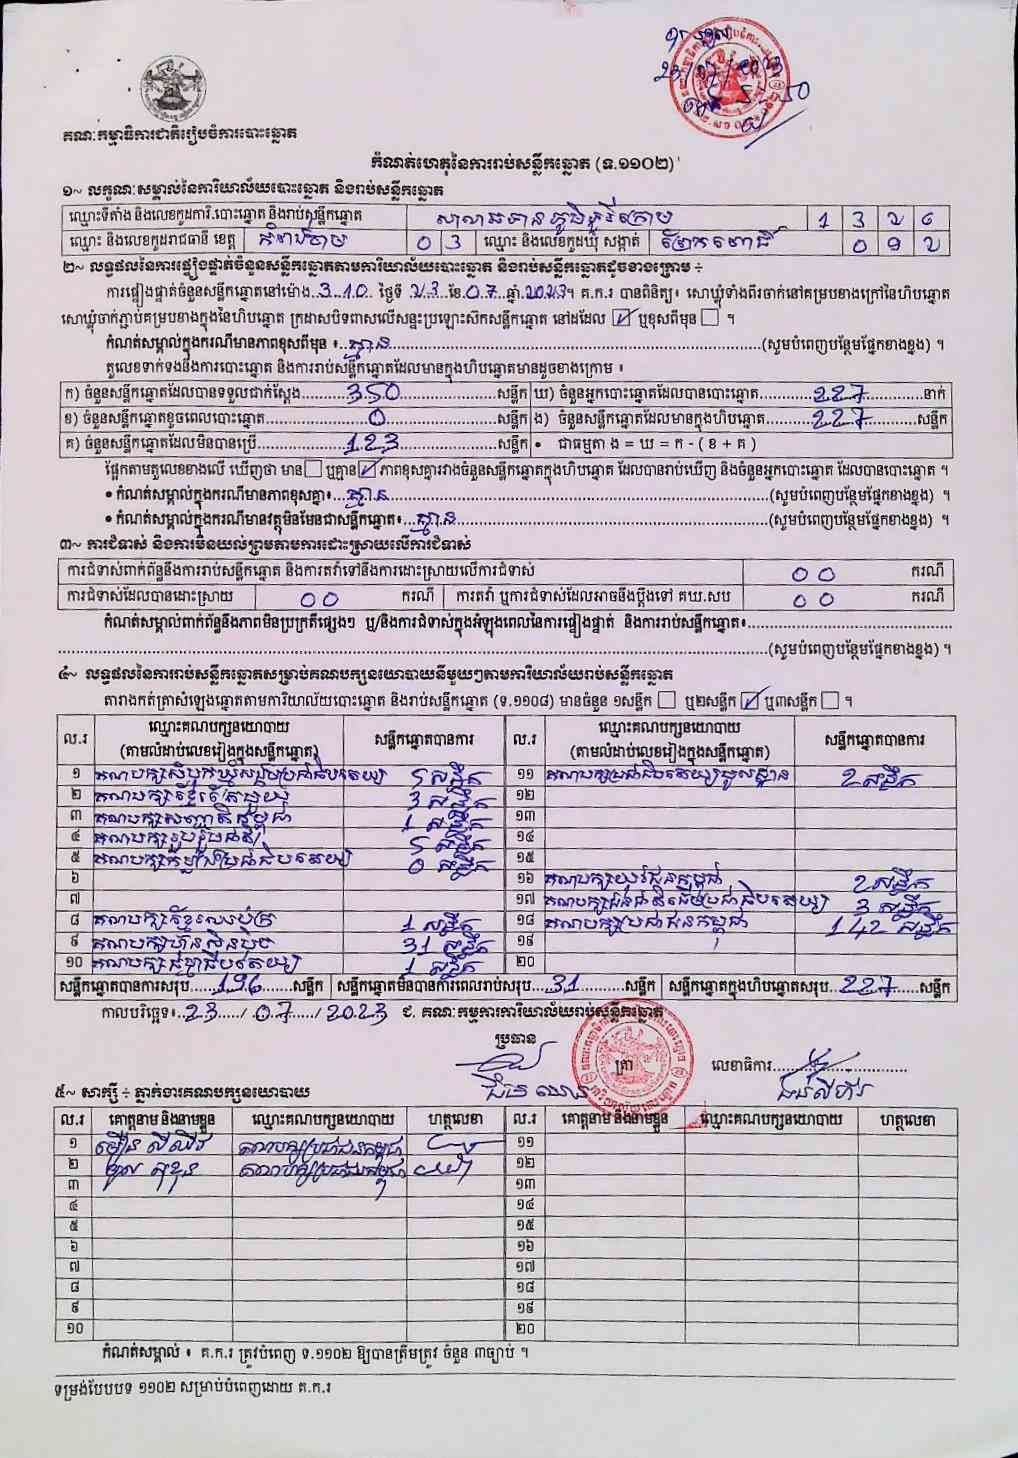 គណៈកម្មាធិការជាតិរៀបចំការបោះឆ្នោត
កំណត់ហេតុនៃការរាប់សន្លឹកឆ្នោត (ទ.១១០២)
១~ លក្ខណៈសម្គាល់នៃការិយាល័យបោះឆ្នោត និងរាប់សន្លឹកឆ្នោត
ឈ្មោះទីតាំង និងលេខកូដការិ.បោះឆ្នោត និងរាប់សន្លឹកឆ្នោត សាលាធទាន ភូមិ ក្រោម 1 3 2 6
ឈ្មោះ និងលេខកូដរាជធានី ខេត្ត កំពង់ចាម 0 3 ឈ្មោះ និងលេខកូដឃុំ សង្កាត់ ព្រែក 0 9 2
២~ លទ្ធផលនៃការផ្ទៀងផ្ទាត់ចំនួនសន្លឹកឆ្នោតតាមការិយាល័យបោះឆ្នោត និងរាប់សន្លឹកឆ្នោតដូចខាងក្រោម ÷
ការផ្ទៀងផ្ទាត់ចំនួនសន្លឹកឆ្នោតនៅម៉ោង 3.10 ថ្ងៃទី 23 ខែ 07 ឆ្នាំ 2023។ គ.ក.រ បានពិនិត្យ៖ សោឃ្លុំទាំងពីរចាក់នៅគម្របខាងក្រៅនៃហិបឆ្នោត
សោឃ្លុំចាក់ភ្ជាប់គម្របខាងក្នុងនៃហិបឆ្នោត ក្រដាសបិទពាសលើសន្ទះប្រឡោះស៊កសន្លឹកឆ្នោត នៅដដែល ☑ ឬខុសពីមុន ☐ ។
កំណត់សម្គាល់ក្នុងករណីមានភាពខុសពីមុន ៖ គ្មាន (សូមបំពេញបន្ថែមផ្នែកខាងខ្នង) ។
តួលេខទាក់ទងនឹងការបោះឆ្នោត និងការរាប់សន្លឹកឆ្នោតដែលមានក្នុងហិបឆ្នោតមានដូចខាងក្រោម ៖
ក) ចំនួនសន្លឹកឆ្នោតដែលបានទទួលជាក់ស្តែង 350 សន្លឹក ឃ) ចំនួនអ្នកបោះឆ្នោតដែលបានបោះឆ្នោត 227 នាក់
ខ) ចំនួនសន្លឹកឆ្នោតខូចពេលបោះឆ្នោត 0 សន្លឹក ង) ចំនួនសន្លឹកឆ្នោតដែលមានក្នុងហិបឆ្នោត 227 សន្លឹក
គ) ចំនួនសន្លឹកឆ្នោតដែលមិនបានប្រើ 123 សន្លឹក • ជាធម្មតា ង = ឃ = ក - ( ខ + គ )
ផ្អែកតាមតួលេខខាងលើ ឃើញថា មាន ☐ ឬគ្មាន ☑ ភាពខុសគ្នារវាងចំនួនសន្លឹកឆ្នោតក្នុងហិបឆ្នោត ដែលបានរាប់ឃើញ និងចំនួនអ្នកបោះឆ្នោត ដែលបានបោះឆ្នោត ។
• កំណត់សម្គាល់ក្នុងករណីមានភាពខុសគ្នា៖ គ្មាន (សូមបំពេញបន្ថែមផ្នែកខាងខ្នង) ។
• កំណត់សម្គាល់ក្នុងករណីមានវត្ថុមិនមែនជាសន្លឹកឆ្នោត៖ គ្មាន (សូមបំពេញបន្ថែមផ្នែកខាងខ្នង) ។
៣~ ការជំទាស់ និងការមិនយល់ព្រមតាមការដោះស្រាយលើការជំទាស់
ការជំទាស់ពាក់ព័ន្ធនឹងការរាប់សន្លឹកឆ្នោត និងការតវ៉ាទៅនឹងការដោះស្រាយលើការជំទាស់ 0 0 ករណី
ការជំទាស់ដែលបានដោះស្រាយ 0 0 ករណី ការតវ៉ា ឬការជំទាស់ដែលអាចនឹងប្តឹងទៅ គឃ.សប 0 0 ករណី
កំណត់សម្គាល់ពាក់ព័ន្ធនឹងភាពមិនប្រក្រតីផ្សេងៗ ឬ/និងការជំទាស់ក្នុងអំឡុងពេលនៃការផ្ទៀងផ្ទាត់ និងការរាប់សន្លឹកឆ្នោត៖
(សូមបំពេញបន្ថែមផ្នែកខាងខ្នង) ។
៤~ លទ្ធផលនៃការរាប់សន្លឹកឆ្នោតសម្រាប់គណបក្សនយោបាយនីមួយៗតាមការិយាល័យរាប់សន្លឹកឆ្នោត
តារាងកត់ត្រាសំឡេងឆ្នោតតាមការិយាល័យបោះឆ្នោត និងរាប់សន្លឹកឆ្នោត (ទ.១១០៨) មានចំនួន ១សន្លឹក ☐ ឬ២សន្លឹក ☑ ឬ៣សន្លឹក ☐ ។
ល.រ ឈ្មោះគណបក្សនយោបាយ (តាមលំដាប់លេខរៀងក្នុងសន្លឹកឆ្នោត) សន្លឹកឆ្នោតបានការ ល.រ ឈ្មោះគណបក្សនយោបាយ (តាមលំដាប់លេខរៀងក្នុងសន្លឹកឆ្នោត) សន្លឹកឆ្នោតបានការ
១ គណបក្សសំបុកឃ្មុំសង្គមប្រជាធិបតេយ្យ 5 សន្លឹក ១១ គណបក្សប្រជាធិបតេយ្យមូលដ្ឋាន 2 សន្លឹក
២ គណបក្សខ្មែរតែមួយ 3 សន្លឹក ១២
៣ គណបក្សសញ្ជាតិកម្ពុជា 1 សន្លឹក ១៣
៤ គណបក្សរួបរួមជាតិ 5 សន្លឹក ១៤
៥ គណបក្សកម្លាំងប្រជាធិបតេយ្យ 0 សន្លឹក ១៥
៦ ១៦ គណបក្សយុវជនកម្ពុជា 2 សន្លឹក
៧ ១៧ គណបក្សជនជាតិដើមប្រជាធិបតេយ្យ 3 សន្លឹក
៨ គណបក្សខ្មែរឈប់ក្រ 1 សន្លឹក ១៨ គណបក្សប្រជាជនកម្ពុជា 142 សន្លឹក
៩ គណបក្សហ៊្វុនស៊ិនប៉ិច 31 សន្លឹក ១៩
១០ គណបក្សធម្មាធិបតេយ្យ 1 សន្លឹក ២០
សន្លឹកឆ្នោតបានការសរុប 196 សន្លឹក សន្លឹកឆ្នោតមិនបានការពេលរាប់សរុប 31 សន្លឹក សន្លឹកឆ្នោតក្នុងហិបឆ្នោតសរុប 227 សន្លឹក
កាលបរិច្ឆេទ៖ 23 / 07 / 2023 ជ. គណៈកម្មការការិយាល័យរាប់សន្លឹកឆ្នោត
ប្រធាន
ត្រា លេខាធិការ
៥~ សាក្សី ÷ ភ្នាក់ងារគណបក្សនយោបាយ
ល.រ គោត្តនាម និងនាមខ្លួន ឈ្មោះគណបក្សនយោបាយ ហត្ថលេខា ល.រ គោត្តនាម និងនាមខ្លួន ឈ្មោះគណបក្សនយោបាយ ហត្ថលេខា
១ គណបក្សប្រជាជនកម្ពុជា ១១
២ គណបក្សប្រជាជនកម្ពុជា ១២
៣ ១៣
៤ ១៤
៥ ១៥
៦ ១៦
៧ ១៧
៨ ១៨
៩ ១៩
១០ ២០
កំណត់សម្គាល់ ៖ គ.ក.រ ត្រូវបំពេញ ទ.១១០២ ឱ្យបានត្រឹមត្រូវ ចំនួន ៣ច្បាប់ ។
ទម្រង់បែបបទ ១១០២ សម្រាប់បំពេញដោយ គ.ក.រ